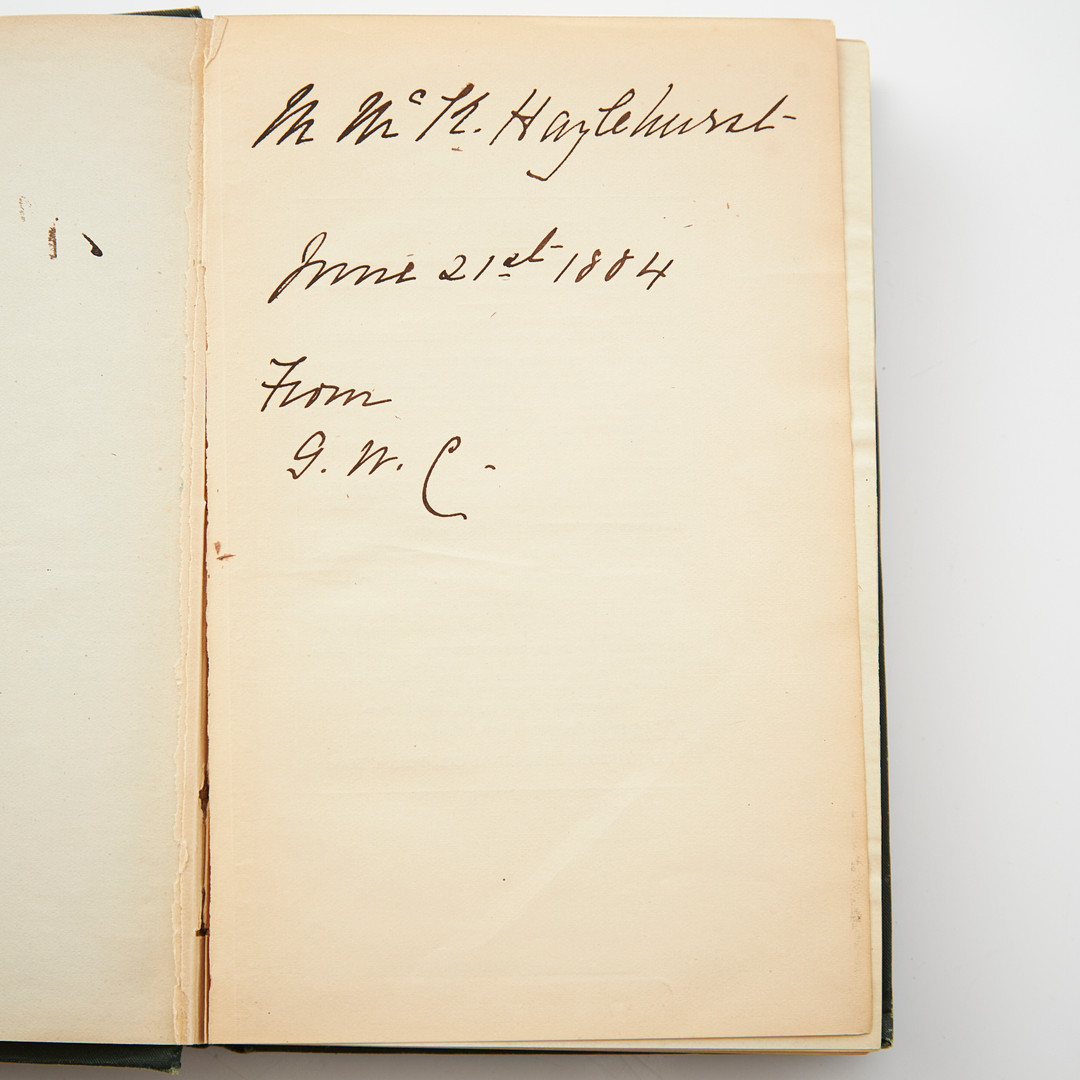 M McK. Hazlehurst
June 21st 1884
From
G. W. C.